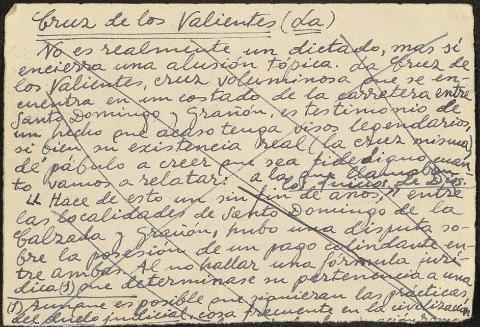 Cruz de los Valientes (La)
No es realmente un dictado, mas sí
encierra una alusión tópica. La Cruz de
los Valientes, cruz voluminosa que se en-
cuentra en un costado de la carretera entre
Santo Domingo y Grañón, es testimonio de
un hecho que acaso tenga visos legendarios,
si bien su existencia real (la cruz misma)
dé pábulo a creer que sea fidedigno cuan-
to vamos a relatar: a los que llamaban
los Juicios de Dios.
"Hace de esto un sin fin de años," entre
las localidades de Santo Domingo de la
Calzada y Grañón, hubo una disputa so-
bre la posesión de un pago colindante en-
tre ambas. Al no hallar una fórmula jurí-
dica(1) que determinase su pertenencia a una
(1) es posible que siguieran las prácticas
del duelo judicial, cosa frecuente en la civilización